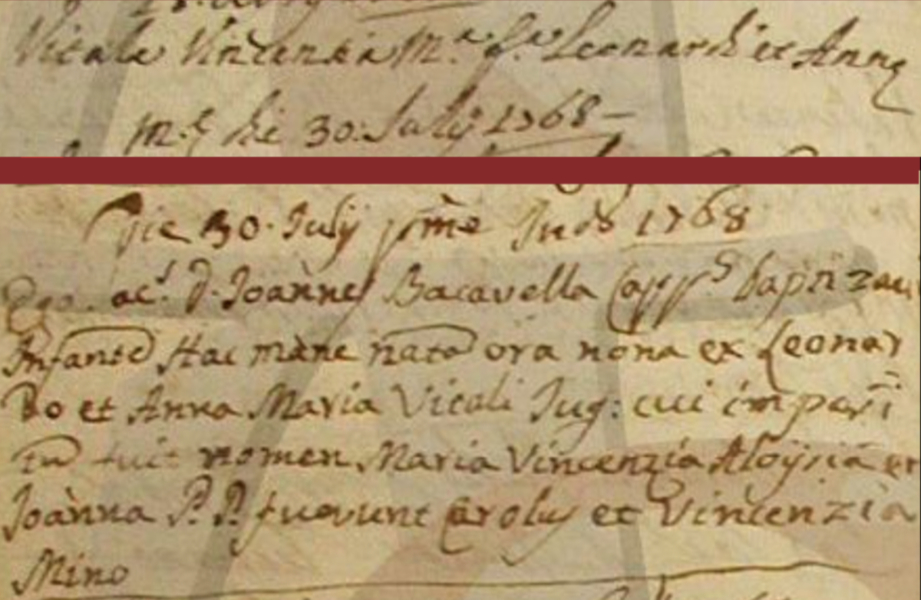 Vitale Vincentia M.ª f.ª Leonardi et Annę
M.ę die 30: Julÿ 1768 –
Die 30. Julÿ pme Inds 1768
Ego. ac.s D. Joànnes Bacavella Capps baptizavi
Infante Hac màne nata ora nona ex Leonar
do et Anna Maria Vitali Jug: cui imposi
tu fuit nomen Maria Vincenzia Aloÿsia et
Joànna P. P. fuerunt Carolus et Vincenzia
Mino